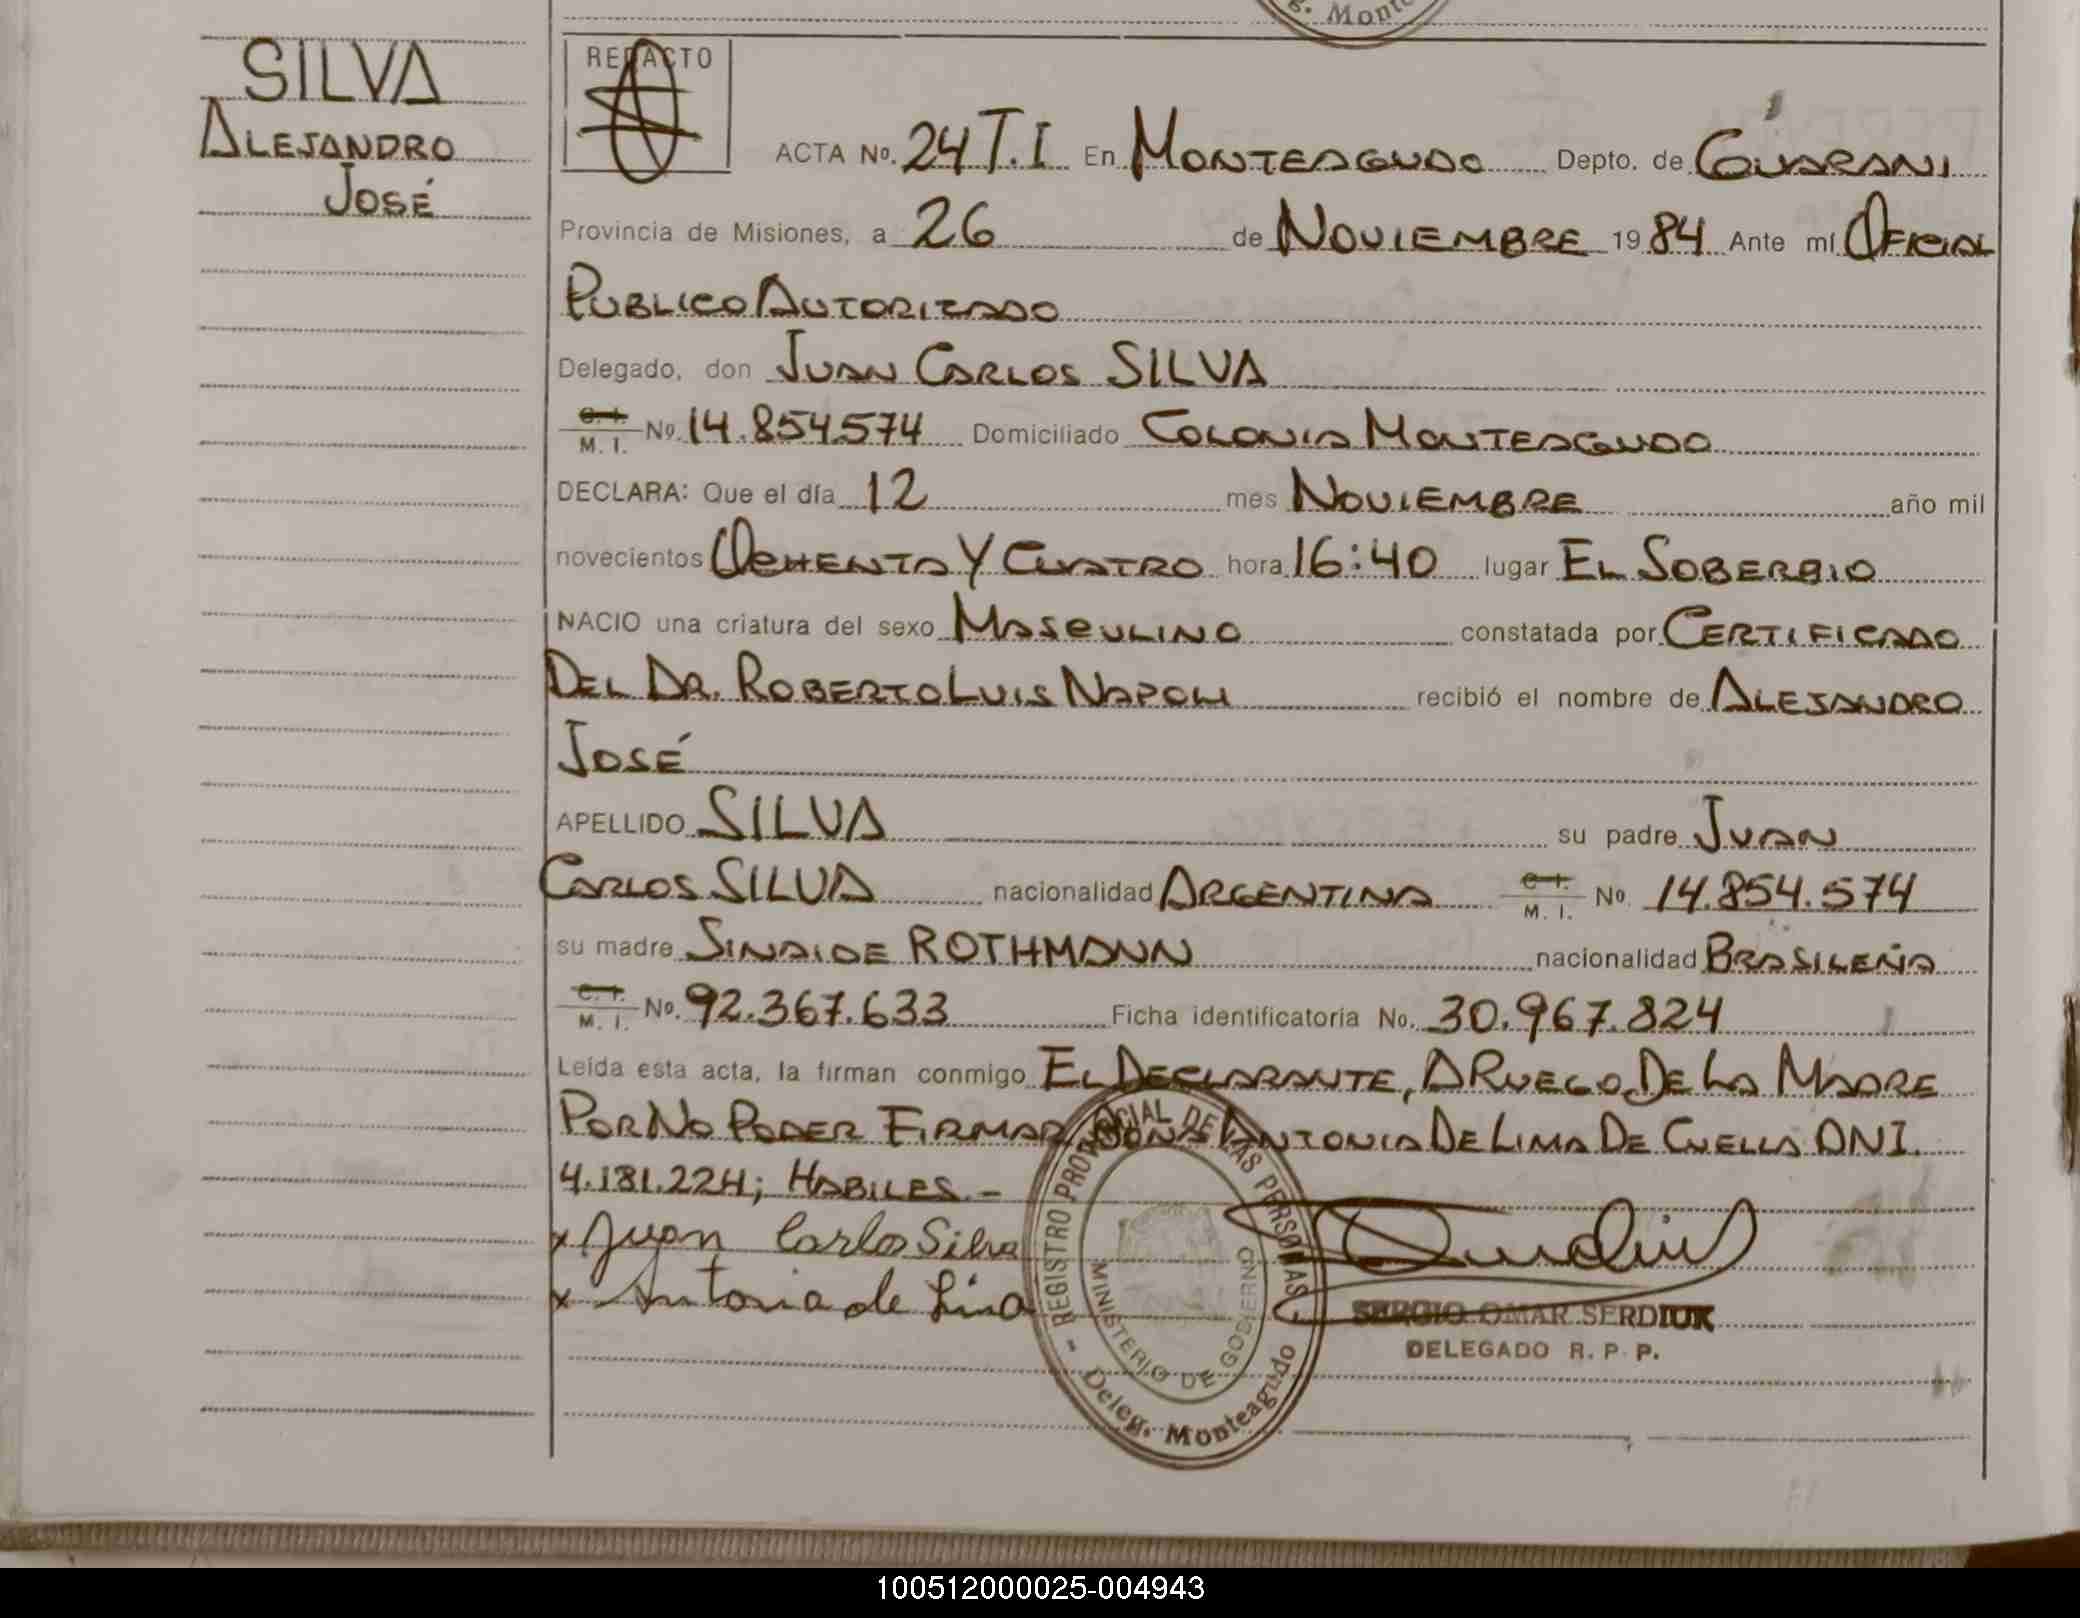 g. Monte
SILVA
ALEJANDRO
JOSÉ
REDACTO
ACTA No. 24 T.I En MONTEAGUDO Depto. de GUARANI
Provincia de Misiones, a 26 de NOVIEMBRE 1984 Ante mí OFICIAL
PUBLICO AUTORIZADO
Delegado, don JUAN CARLOS SILVA
C. I. / M. I. No. 14.854.574 Domiciliado COLONIA MONTEAGUDO
DECLARA: Que el día 12 mes NOVIEMBRE año mil
novecientos OCHENTA Y CUATRO hora 16:40 lugar EL SOBERBIO
NACIO una criatura del sexo MASCULINO constatada por CERTIFICADO
DEL DR. ROBERTO LUIS NAPOLI recibió el nombre de ALEJANDRO
JOSÉ
APELLIDO SILVA su padre JUAN
CARLOS SILVA nacionalidad ARGENTINA C. I. / M. I. No. 14.854.574
su madre SINAIDE ROTHMANN nacionalidad BRASILEÑA
C. I. / M. I. No. 92.367.633 Ficha identificatoria No. 30.967.824
Leída esta acta, la firman conmigo EL DECLARANTE, A RUEGO DE LA MADRE
POR NO PODER FIRMAR DONA ANTONIA DE LIMA DE CUELLA DNI.
4.181.224; HABILES.-
x Juan Carlos Silva
x Antonia de Lima
REGISTRO PROVINCIAL DE LAS PERSONAS
MINISTERIO DE GOBIERNO
Deleg. Monteagudo
SERGIO OMAR SERDIUK
DELEGADO R. P. P.
100512000025-004943